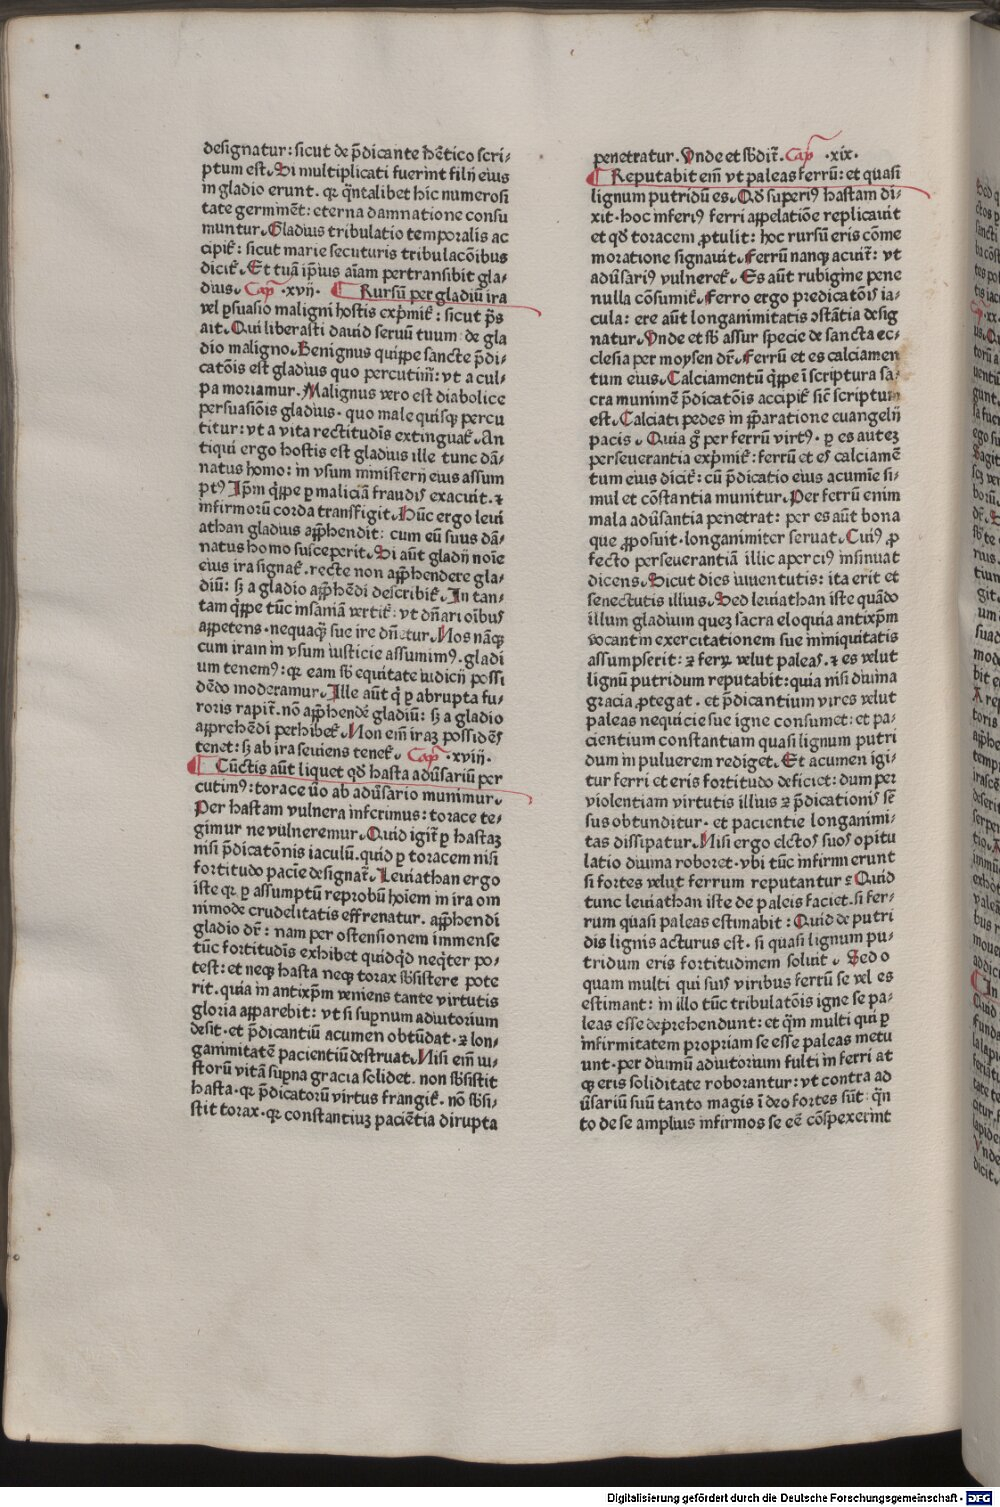 designatur: sicut de p̄dicante hētico scri⸗
ptum est. Si multiplicati fuerint filij eius
in gladio erunt. qr q̄ntalibet hic numerosi
tate germinēt: eterna damnatione consu
muntur. Gladius tribulatio temporalis ac
cipit̄: sicut marie secuturis tribulacōibus
dicit̄. Et tuā ip̄ius aīam pertransibit gla⸗
dius. Cap̄ ·xvij· Rursū per gladiū ira
vel ꝑsuasio maligni hostis exp̄mit̄: sicut p̄s
ait. Qui liberasti dauid seruū tuum: de gla
dio maligno. Benignus quippe sancte p̄di⸗
catōis est gladius quo percutim̄: vt a cul⸗
pa moriamur. Malignus vero est diabolice
persuasiōis gladius· quo male quisq; percu
titur: vt a vita rectitudīs extinguat̄. An
tiqui ergo hostis est gladius ille tunc dā⸗
natus homo: in vsum ministerij eius assum
ptꝰ Ip̄m q̄ppe ꝑ maliciā fraudis exacuit. ⁊
infirmorū corda transfigit. Hūc ergo leui
athan gladius app̄hendit: cum eū suus dā⸗
natus homo susceperit. Si aūt gladij noīe
eius ira signat̄. recte non app̄hendere gla⸗
diū: sꝫ a gladio app̄hēdi describit̄. In tan⸗
tam q̄ppe tūc insaniā vertit̄: vt dn̄ari oībus
appetens· nequaq̄ sue ire dn̄etur. Nos nāq;
cum iram in vsum iusticie assumimꝰ. gladi
um tenemꝰ: qr eam sb̄ equitate iudicij possi
dēdo moderamur. Ille aūt q̇ ꝑ abrupta fu⸗
roris rapit̄. nō app̄hendē gladiū: sꝫ a gladio
apprehēdi perhibet̄. Non em̄ iraꝫ possidēs
tenet: sꝫ ab ira seuiens tenet̄. Cap̄ ·xviij·
Cūctis aūt liquet qđ hasta adūsariū per
cutimꝰ: torace ūo ab adūsario munimur.
Per hastam vulnera inferimus: torace te⸗
gimur ne vulneremur. Quid igit̄ ꝑ hastaꝫ
nisi p̄dicatōnis iaculū. quid ꝑ toracem nisi
fortitudo paciēe designat̄. Leuiathan ergo
iste qr ꝑ assumptū reprobū hoīem in ira om
nimode crudelitatis effrenatur. app̄hendi
gladio dr̄: nam per ostensionem immense
tūc fortitudīs exhibet quidqđ neqͥter po⸗
test: et neq; hasta neq; torax sb̄sistere pote
rit. quia in antixp̄m veniens tante virtutis
gloria apparebit: vt si sup̄num adiutorium
desit· et p̄dicantiū acumen obtūdat· ⁊ lon⸗
ganimitatē pacientiū destruat. Nisi em̄ iu⸗
storū vitā sup̄na gracia solidet. non sb̄sistit
hasta· qr p̄dicatorū virtus frangit̄. nō sb̄si⸗
stit torax· qr constantiuꝫ paciētia dirupta
penetratur. Vnde et sb̄dit̄. Cap̄ ·xix·
Reputabit em̄ vt paleas ferrū: et quasi
lignum putridū es. Qđ superiꝰ hastam di⸗
xit· hoc inferiꝰ ferri appelatiōe replicauit
et qđ toracem ꝓtulit: hoc rursū eris cōme
moratione signauit. Ferrū nanq; acuit̄: vt
adūsariꝰ vulneret̄. Es aūt rubigine pene
nulla cōsumit̄. Ferro ergo predicatōis ia⸗
cula: ere aūt longanimitatis ꝯstātia desig
natur. Vnde et sb̄ assur specie de sancta ec⸗
clesia per moysen dr̄. Ferrū et es calciamen
tum eius. Calciamentū q̄ppe ī scriptura sa⸗
cra munimē p̄dicatōis accipit̄ sic̄ scriptum
est. Calciati pedes in p̄paratione euangelij
pacis. Quia gͦ per ferrū virtꝰ. ꝑ es auteꝫ
perseuerantia exp̄mit̄: ferrū et es calciamē
tum eius dicit̄: cū p̄dicatio eius acumīe si⸗
mul et cōstantia munitur. Per ferrū enim
mala adūsantia penetrat: per es aūt bona
que ꝓposuit· longanimiter seruat. Cuiꝰ ꝓ
fecto perseuerantiā illic aperciꝰ insinuat
dicens. Sicut dies iuuentutis: ita erit et
senectutis illius. Sed leuiathan iste quādo
illum gladium queꝫ sacra eloquia antixp̄m
vocant in exercitationem sue iniquitatis
assumpserit: ⁊ ferꝝ velut paleas. ⁊ es velut
lignū putridum reputabit: quia nisi diuina
gracia ꝓtegat· et p̄dicantium vires velut
paleas nequicie sue igne consumet: et pa⸗
cientium constantiam quasi lignum putri
dum in puluerem rediget. Et acumen igi⸗
tur ferri et eris fortitudo deficiet: dum per
violentiam virtutis illius ⁊ p̄dicationis sē
sus obtunditur· et pacientie longanimi⸗
tas dissipatur. Nisi ergo elctōs suos opitu
latio diuina roboret· vbi tūc infirmi erunt
si fortes velut ferrum reputantur? Quid
tunc leuiathan iste de paleis faciet. si fer⸗
rum quasi paleas estimabit: Quid de putri
dis lignis acturus est· si quasi lignum pu⸗
tridum eris fortitudinem soluit. Sed o
quam multi qui suis viribus ferrū se vel es
estimant: in illo tūc tribulatōis igne se pa⸗
leas esse deprehendunt: et q̄m multi qui ꝑ
infirmitatem propriam se esse paleas metu
unt· per diuinū adiutorium fulti in ferri at
q; eris soliditate roborantur: vt contra ad
ūsariū suū tanto magis ī deo fortes sūt: q̄n
to de se amplius infirmos se eē cōspexerint
Digitalisierung gefördert durch die Deutsche Forschungsgemeinschaft - DFG